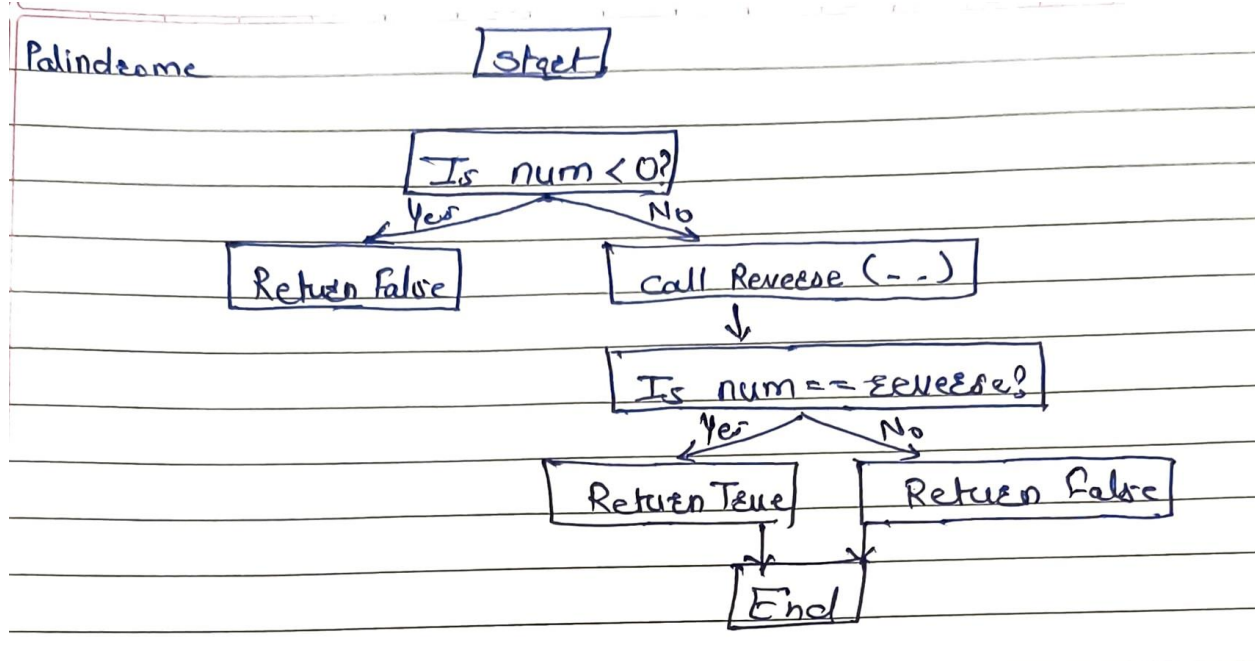 Palindrome
Start
Is num < 0?
Yes No
Return False
Call Reverse (- -)
Is num == reverse?
Yes No
Return True
Return False
End